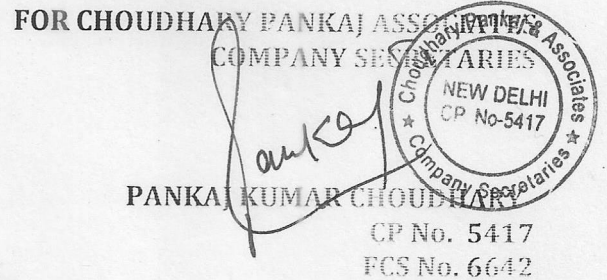 FOR CHOUDHARY PANKAJ ASSOCIATES
COMPANY SECRETARIES
Choudhary Pankaj & Associates
NEW DELHI
CP No-5417
★ Company Secretaries ★
Pankaj
PANKAJ KUMAR CHOUDHARY
CP No. 5417
FCS No. 6642